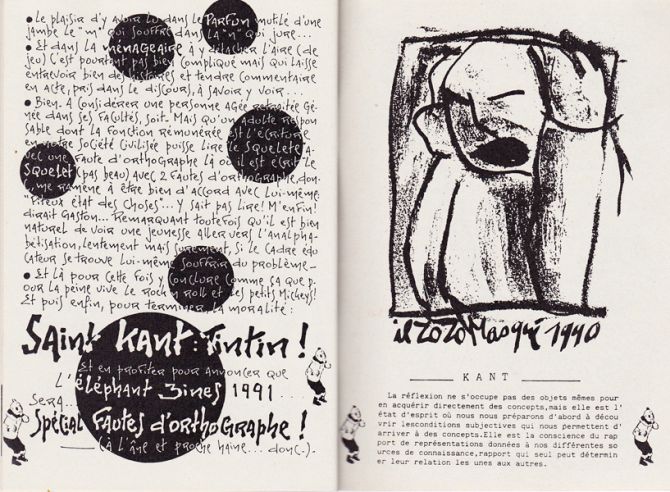 • Le plaisir d'y avoir lu dans le PARFUM mutilé d'une
jambe le "m" qui souffre dans la "n" qui jure...
• Et dans la ménageraire à y délacher l'aire (de
jeu) C'est pourtant pas bien compliqué mais qui laisse
entrevoir bien des histoires et tendre commentaire
en acte, pris dans le discours, à savoir y voir...
• Bien. A considérer une personne agée retraitée gé-
née dans ses facultés, soit. Mais qu'un adulte respon
sable dont la fonction rémunérée est l'écriture
en notre société civilisée puisse lire le SQUELETE a-
vec une faute d'orthographe là où il est écrit le
SQUELET (pas beau) avec 2 fautes d'orthographe, don-
me ramène à être bien d'accord avec lui-même:
"Piteux état des choses"... y sait pas lire! M'enfin!
dirait Gaston... Remarquant toutefois qu'il est bien
naturel de voir une jeunesse aller vers l'analpha-
bétisation, lentement mais surement, si le cadre édu
cateur se trouve lui-même souffrir du problème_
• Et là pour cette fois y conclure comme ça que p-
our la peine vive le Rock n Roll et les petits Mickeys!
Et puis enfin, pour terminer la moralité:
Saint Kant: Tintin!
Et en profiter pour annoncer que
L'éléphant 3ines 1991...
sera...
Spécial fautes d'orthographe!
(à l'âne et proche haine... donc.)
il zozo Masqué 1990
KANT
La réflexion ne s'occupe pas des objets mêmes pour
en acquérir directement des concepts,mais elle est l'
état d'esprit où nous nous préparons d'abord à décou
vrir lesconditions subjectives qui nous permettent d'
arriver à des concepts.Elle est la conscience du rap
port de représentations données à nos différentes so
urces de connaissance,rapport qui seul peut détermin
er leur relation les unes aux autres.